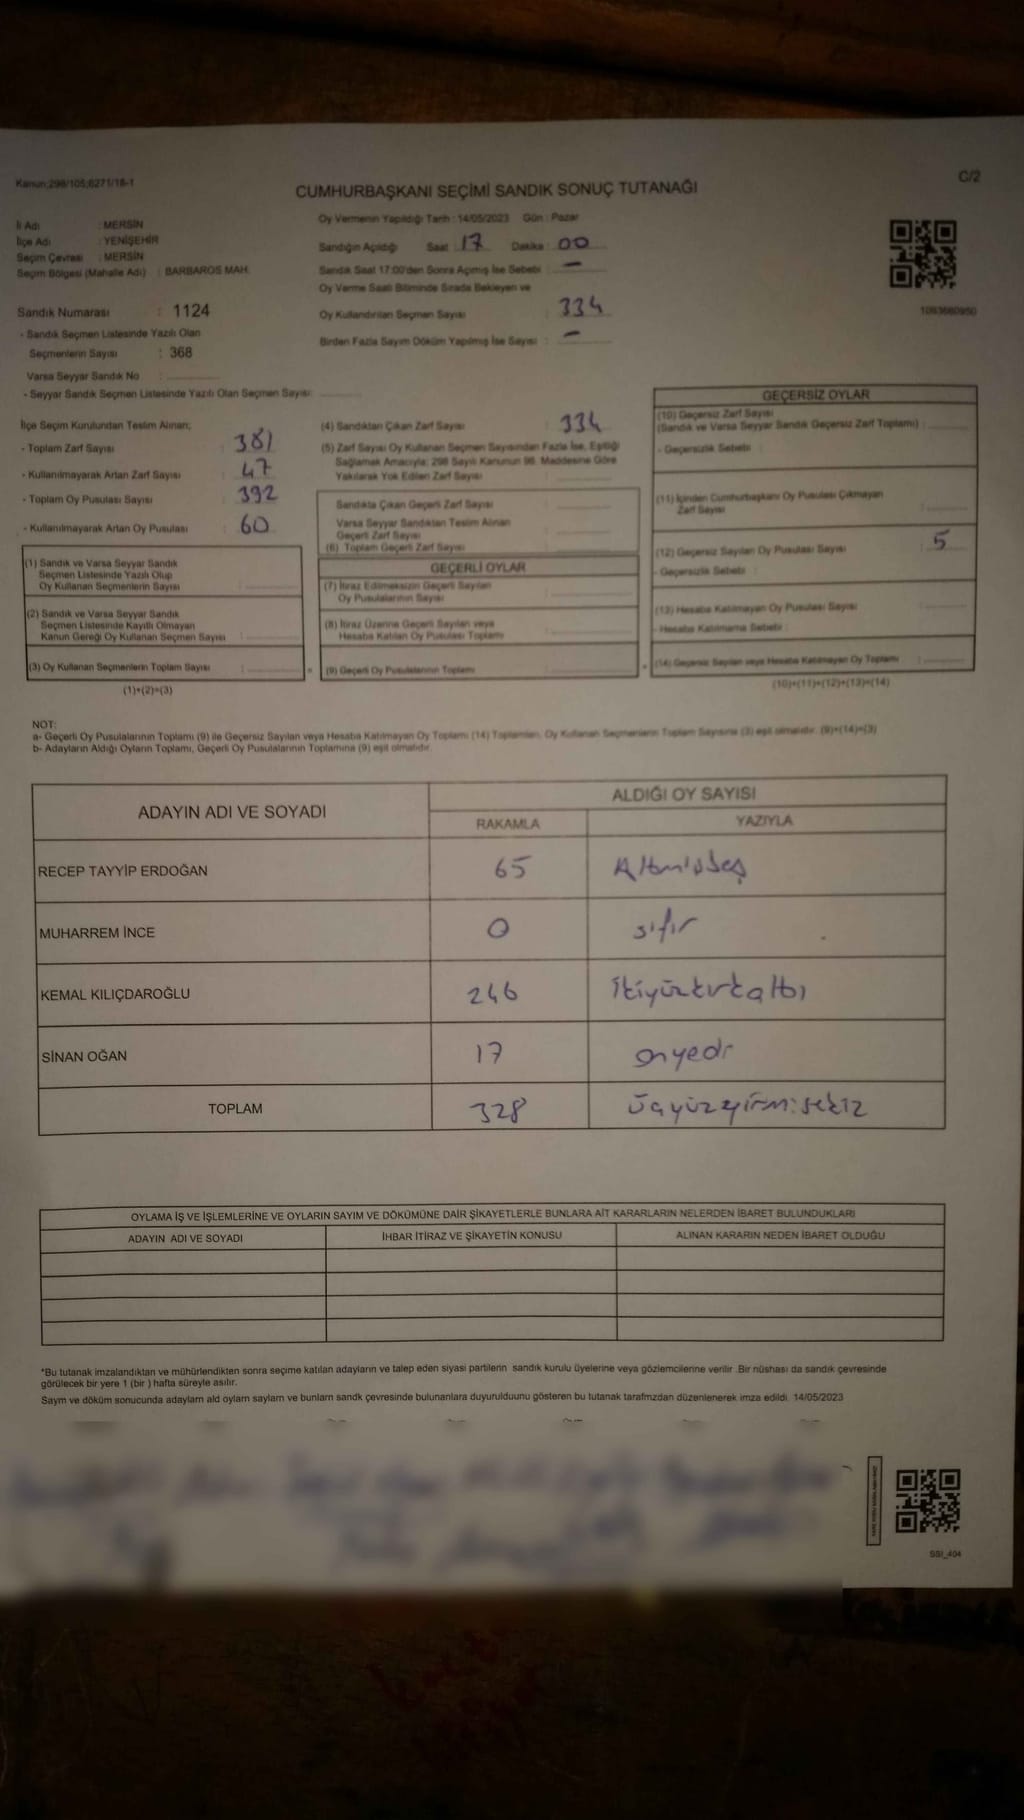 Kanun:298/105;6271/18-1
C/2
CUMHURBAŞKANI SEÇİMİ SANDIK SONUÇ TUTANAĞI
İl Adı : MERSİN
İlçe Adı : YENİŞEHİR
Seçim Çevresi : MERSİN
Seçim Bölgesi (Mahalle Adı) : BARBAROS MAH.
Sandık Numarası : 1124
- Sandık Seçmen Listesinde Yazılı Olan
Seçmenlerin Sayısı : 368
Varsa Seyyar Sandık No :
- Seyyar Sandık Seçmen Listesinde Yazılı Olan Seçmen Sayısı:
Oy Vermenin Yapıldığı Tarih : 14/05/2023 Gün : Pazar
Sandığın Açıldığı Saat : 17 Dakika : 00
Sandık Saat 17:00'den Sonra Açılmış İse Sebebi : -
Oy Verme Saati Bitiminde Sırada Bekleyen ve
Oy Kullandırılan Seçmen Sayısı : 334
Birden Fazla Sayım Döküm Yapılmış İse Sayısı : -
1093680950
İlçe Seçim Kurulundan Teslim Alınan;
- Toplam Zarf Sayısı : 381
- Kullanılmayarak Artan Zarf Sayısı : 47
- Toplam Oy Pusulası Sayısı : 392
- Kullanılmayarak Artan Oy Pusulası : 60
(1) Sandık ve Varsa Seyyar Sandık
Seçmen Listesinde Yazılı Olup
Oy Kullanan Seçmenlerin Sayısı :
(2) Sandık ve Varsa Seyyar Sandık
Seçmen Listesinde Kayıtlı Olmayan
Kanun Gereği Oy Kullanan Seçmen Sayısı :
(3) Oy Kullanan Seçmenlerin Toplam Sayısı :
(1)+(2)=(3)
(4) Sandıktan Çıkan Zarf Sayısı : 334
(5) Zarf Sayısı Oy Kullanan Seçmen Sayısından Fazla İse, Eşitliği
Sağlamak Amacıyla; 298 Sayılı Kanunun 98. Maddesine Göre
Yakılarak Yok Edilen Zarf Sayısı :
Sandıkta Çıkan Geçerli Zarf Sayısı :
Varsa Seyyar Sandıktan Teslim Alınan
Geçerli Zarf Sayısı :
(6) Toplam Geçerli Zarf Sayısı :
GEÇERLİ OYLAR
(7) İtiraz Edilmeksizin Geçerli Sayılan
Oy Pusulalarının Sayısı :
(8) İtiraz Üzerine Geçerli Sayılan veya
Hesaba Katılan Oy Pusulası Toplamı :
(9) Geçerli Oy Pusulalarının Toplamı :
GEÇERSİZ OYLAR
(10) Geçersiz Zarf Sayısı
(Sandık ve Varsa Seyyar Sandık Geçersiz Zarf Toplamı) :
- Geçersizlik Sebebi :
(11) İçinden Cumhurbaşkanı Oy Pusulası Çıkmayan
Zarf Sayısı :
(12) Geçersiz Sayılan Oy Pusulası Sayısı : 5
- Geçersizlik Sebebi :
(13) Hesaba Katılmayan Oy Pusulası Sayısı :
- Hesaba Katılmama Sebebi :
(14) Geçersiz Sayılan veya Hesaba Katılmayan Oy Toplamı :
(10)+(11)+(12)+(13)=(14)
NOT:
a- Geçerli Oy Pusulalarının Toplamı (9) ile Geçersiz Sayılan veya Hesaba Katılmayan Oy Toplamı (14) Toplamları, Oy Kullanan Seçmenlerin Toplam Sayısına (3) eşit olmalıdır. (9)+(14)=(3)
b- Adayların Aldığı Oyların Toplamı, Geçerli Oy Pusulalarının Toplamına (9) eşit olmalıdır.
ADAYIN ADI VE SOYADI
ALDIĞI OY SAYISI
RAKAMLA YAZIYLA
RECEP TAYYİP ERDOĞAN 65 Altmışbeş
MUHARREM İNCE 0 sıfır
KEMAL KILIÇDAROĞLU 246 İkiyüzkırkaltı
SİNAN OĞAN 17 onyedi
TOPLAM 328 üçyüzyirmisekiz
OYLAMA İŞ VE İŞLEMLERİNE VE OYLARIN SAYIM VE DÖKÜMÜNE DAİR ŞİKAYETLERLE BUNLARA AİT KARARLARIN NELERDEN İBARET BULUNDUKLARI
ADAYIN ADI VE SOYADI İHBAR İTİRAZ VE ŞİKAYETİN KONUSU ALINAN KARARIN NEDEN İBARET OLDUĞU
*Bu tutanak imzalandıktan ve mühürlendikten sonra seçime katılan adayların ve talep eden siyasi partilerin sandık kurulu üyelerine veya gözlemcilerine verilir. Bir nüshası da sandık çevresinde
görülecek bir yere 1 (bir ) hafta süreyle asılır.
Sayım ve döküm sonucunda adayların ald oyların sayıları ve bunların sandk çevresinde bulunanlara duyurulduunu gösteren bu tutanak tarafmzdan düzenlenerek imza edildi. 14/05/2023
SSI_404